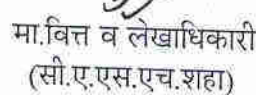 मा.वित्त व लेखाधिकारी
(सी.ए.एस.एच.शहा)